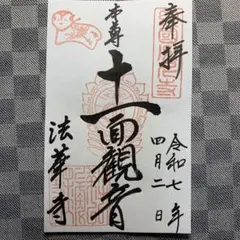 奉拝
令和七年
四月二日
本尊
十一面観音
法華寺